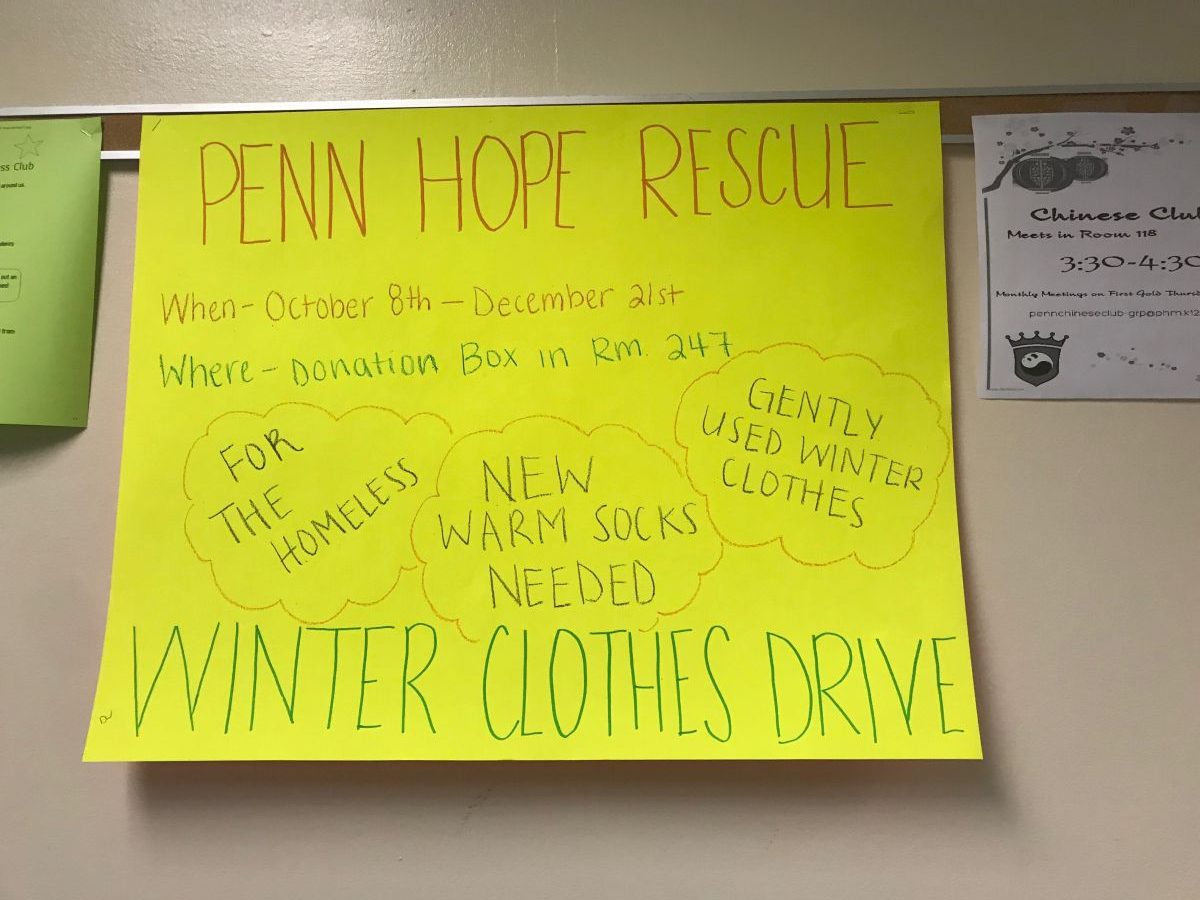 PENN HOPE RESCUE
When - October 8th - December 21st
Where - Donation Box in Rm. 247
FOR
THE
HOMELESS
NEW
WARM SOCKS
NEEDED
GENTLY
USED WINTER
CLOTHES
WINTER CLOTHES DRIVE
ss Club
around us.
from
Chinese Clu
Meets in Room 118
3:30-4:30
Monthly Meetings on First Gold Thurs
pennchineseclub-grp@phm.k12